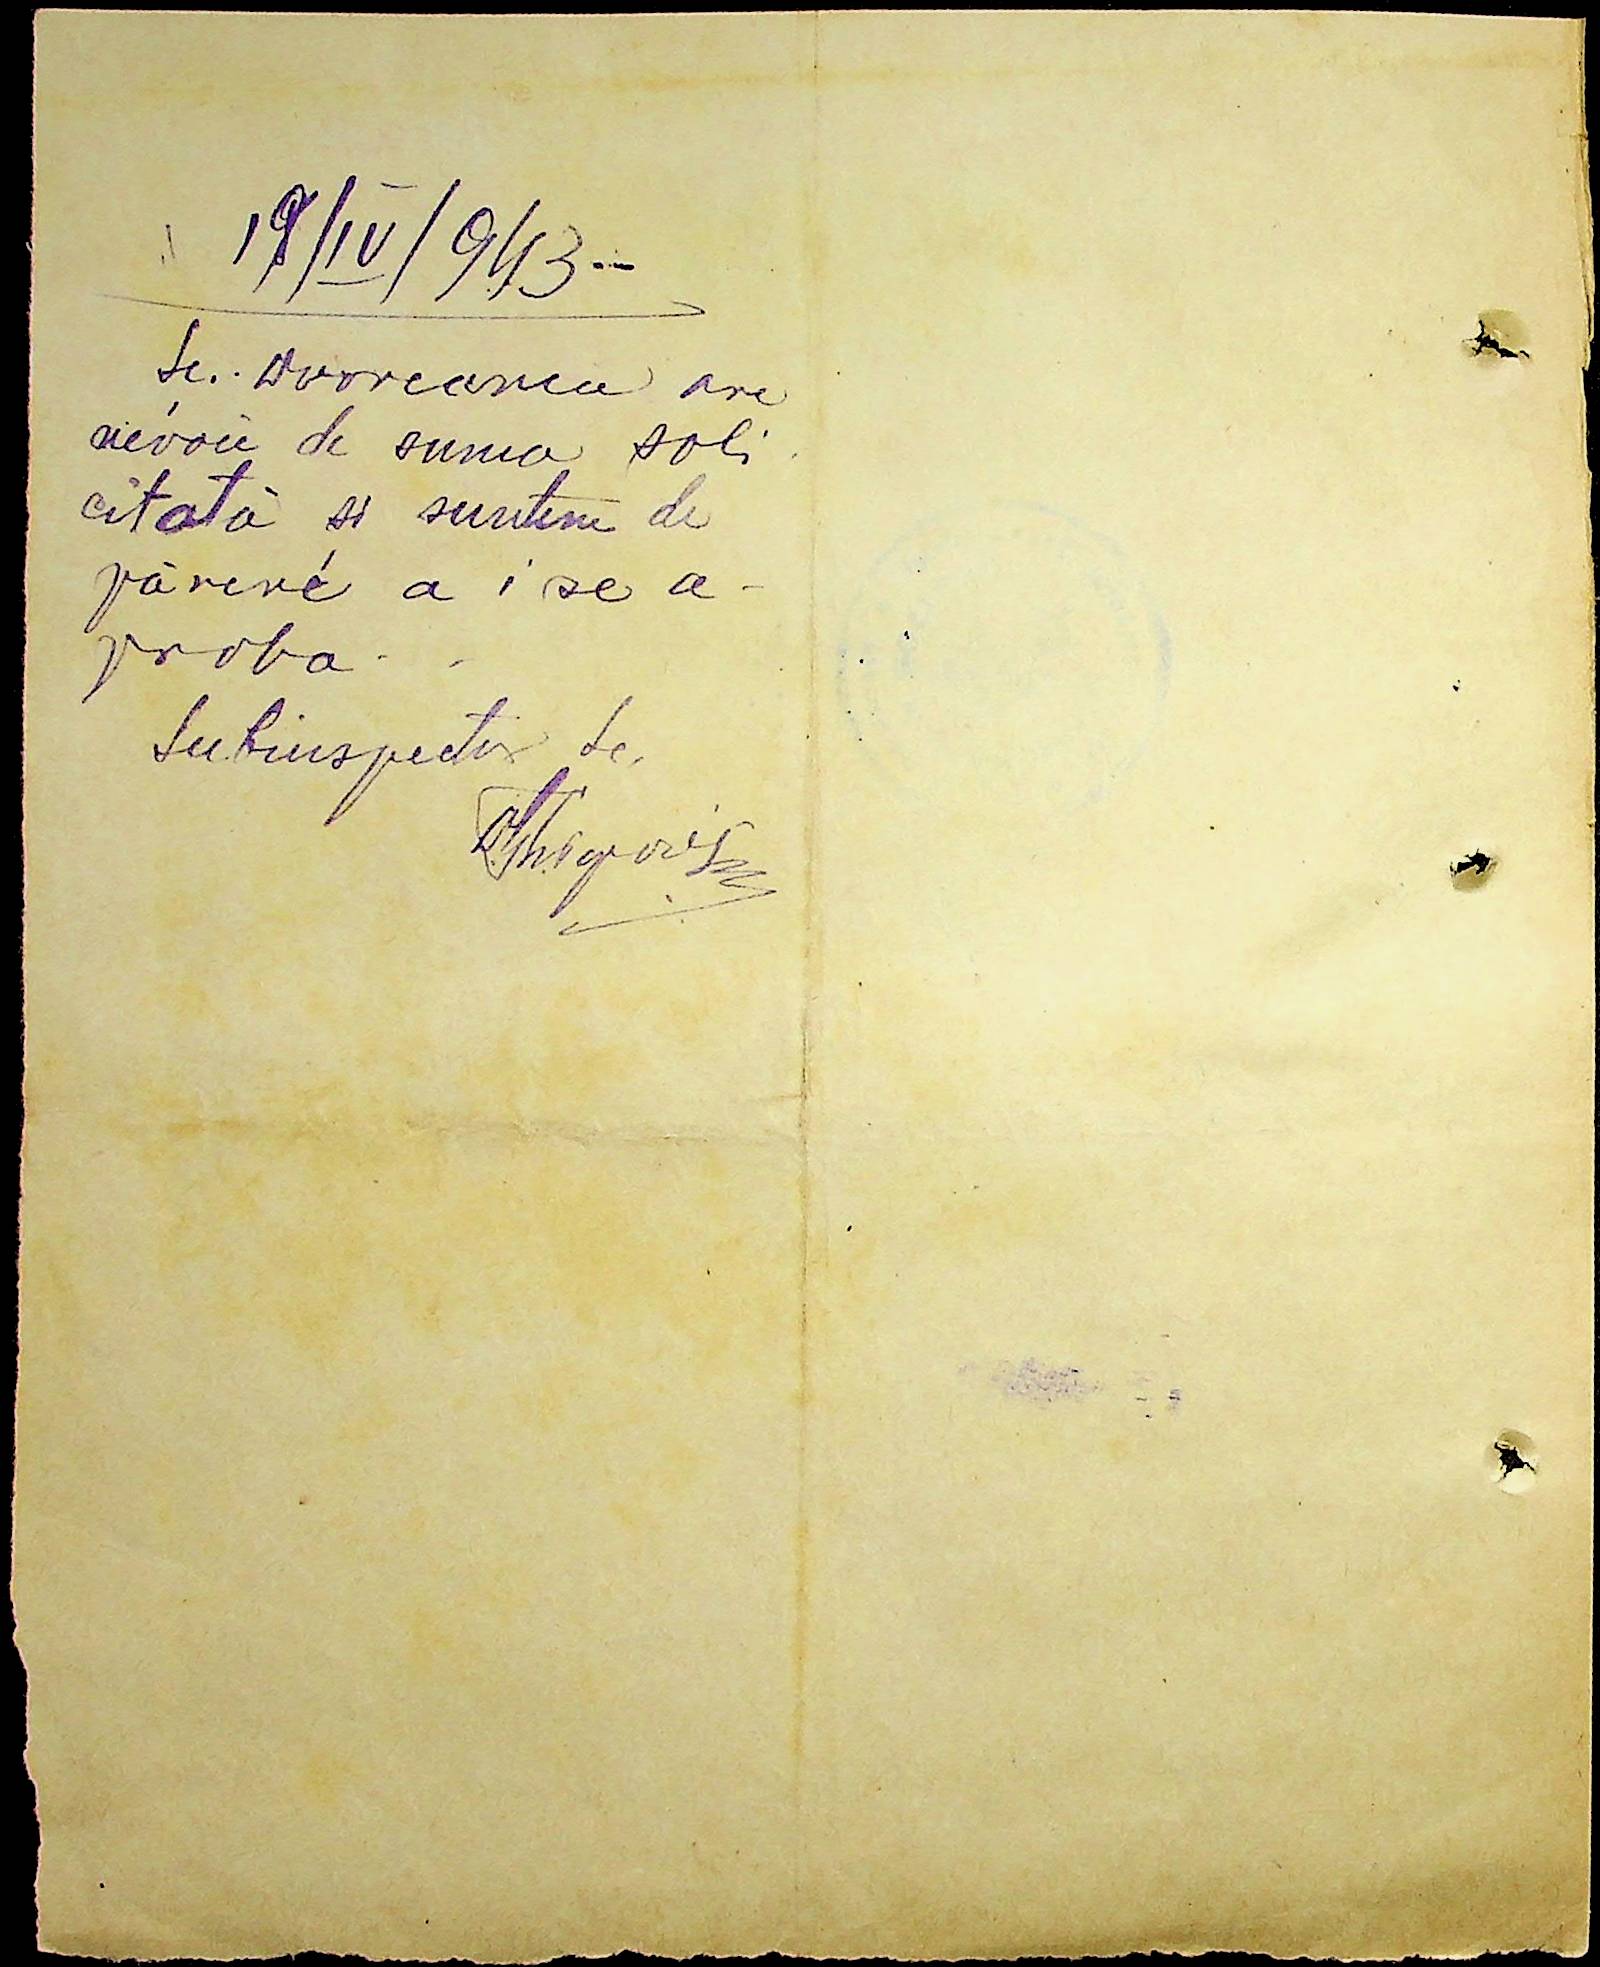 19/IV/943.-
Sc. Dvoreanca are
nevoie de suma soli
citată si suntem de
părere a i se a-
proba.
Subinspector Sc.